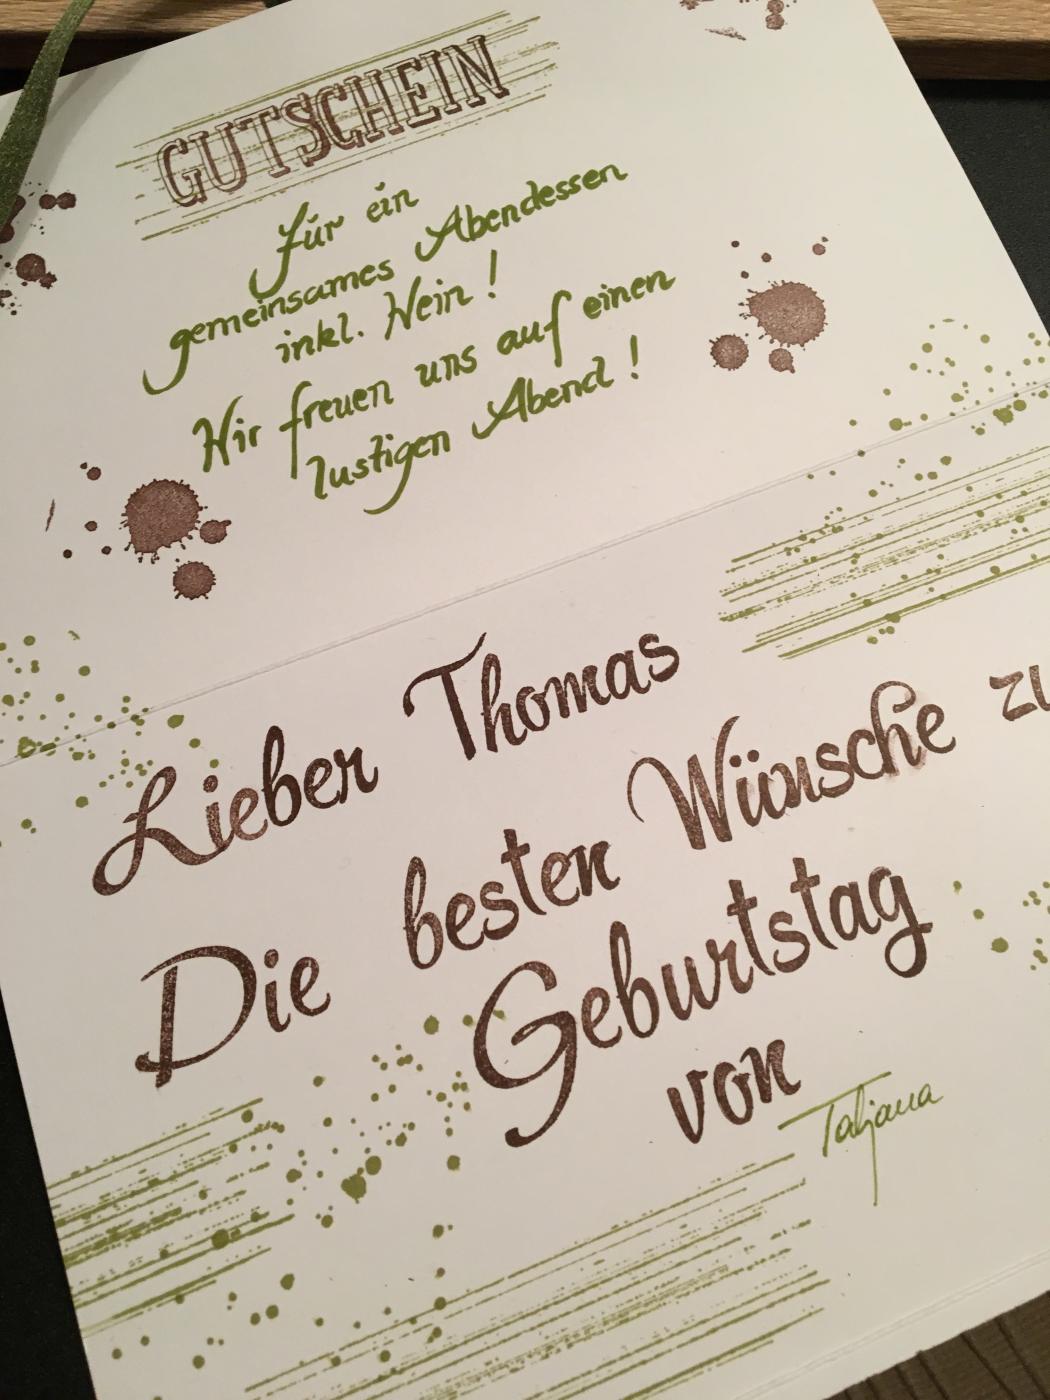 GUTSCHEIN
für ein
gemeinsames Abendessen
inkl. Wein!
Wir freuen uns auf einen
lustigen Abend!
Lieber Thomas
Die besten Wünsche zu
Geburtstag
von
Tatjana